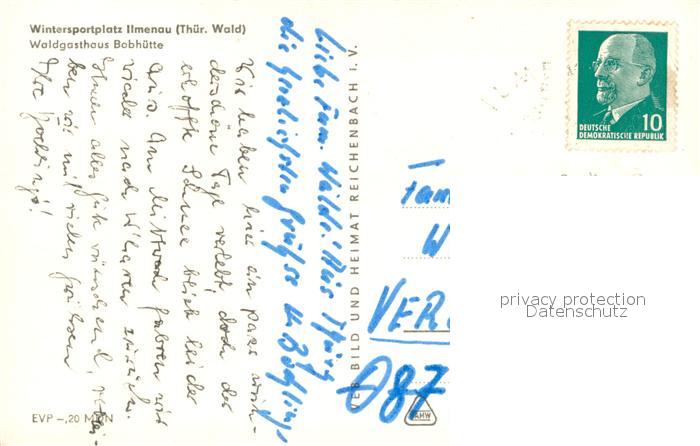 Wintersportplatz Ilmenau (Thür. Wald)
Waldgasthaus Bobhütte
Liebe Fam.
die herzlichsten Grüße
Wir haben hier ein paar wun-
derschöne Tage verlebt, doch der
erhoffte Schnee blieb leider
aus. Am Mittwoch fahren wir
wieder nach
Ihnen alles Gute wünschend, verblei-
ben wir mit vielen Grüßen
Ihre
VEB BILD UND HEIMAT REICHENBACH I. V.
EVP -,20 MDN
AHW
DEUTSCHE
DEMOKRATISCHE REPUBLIK
10
Fam
W
VER
087
privacy protection
Datenschutz